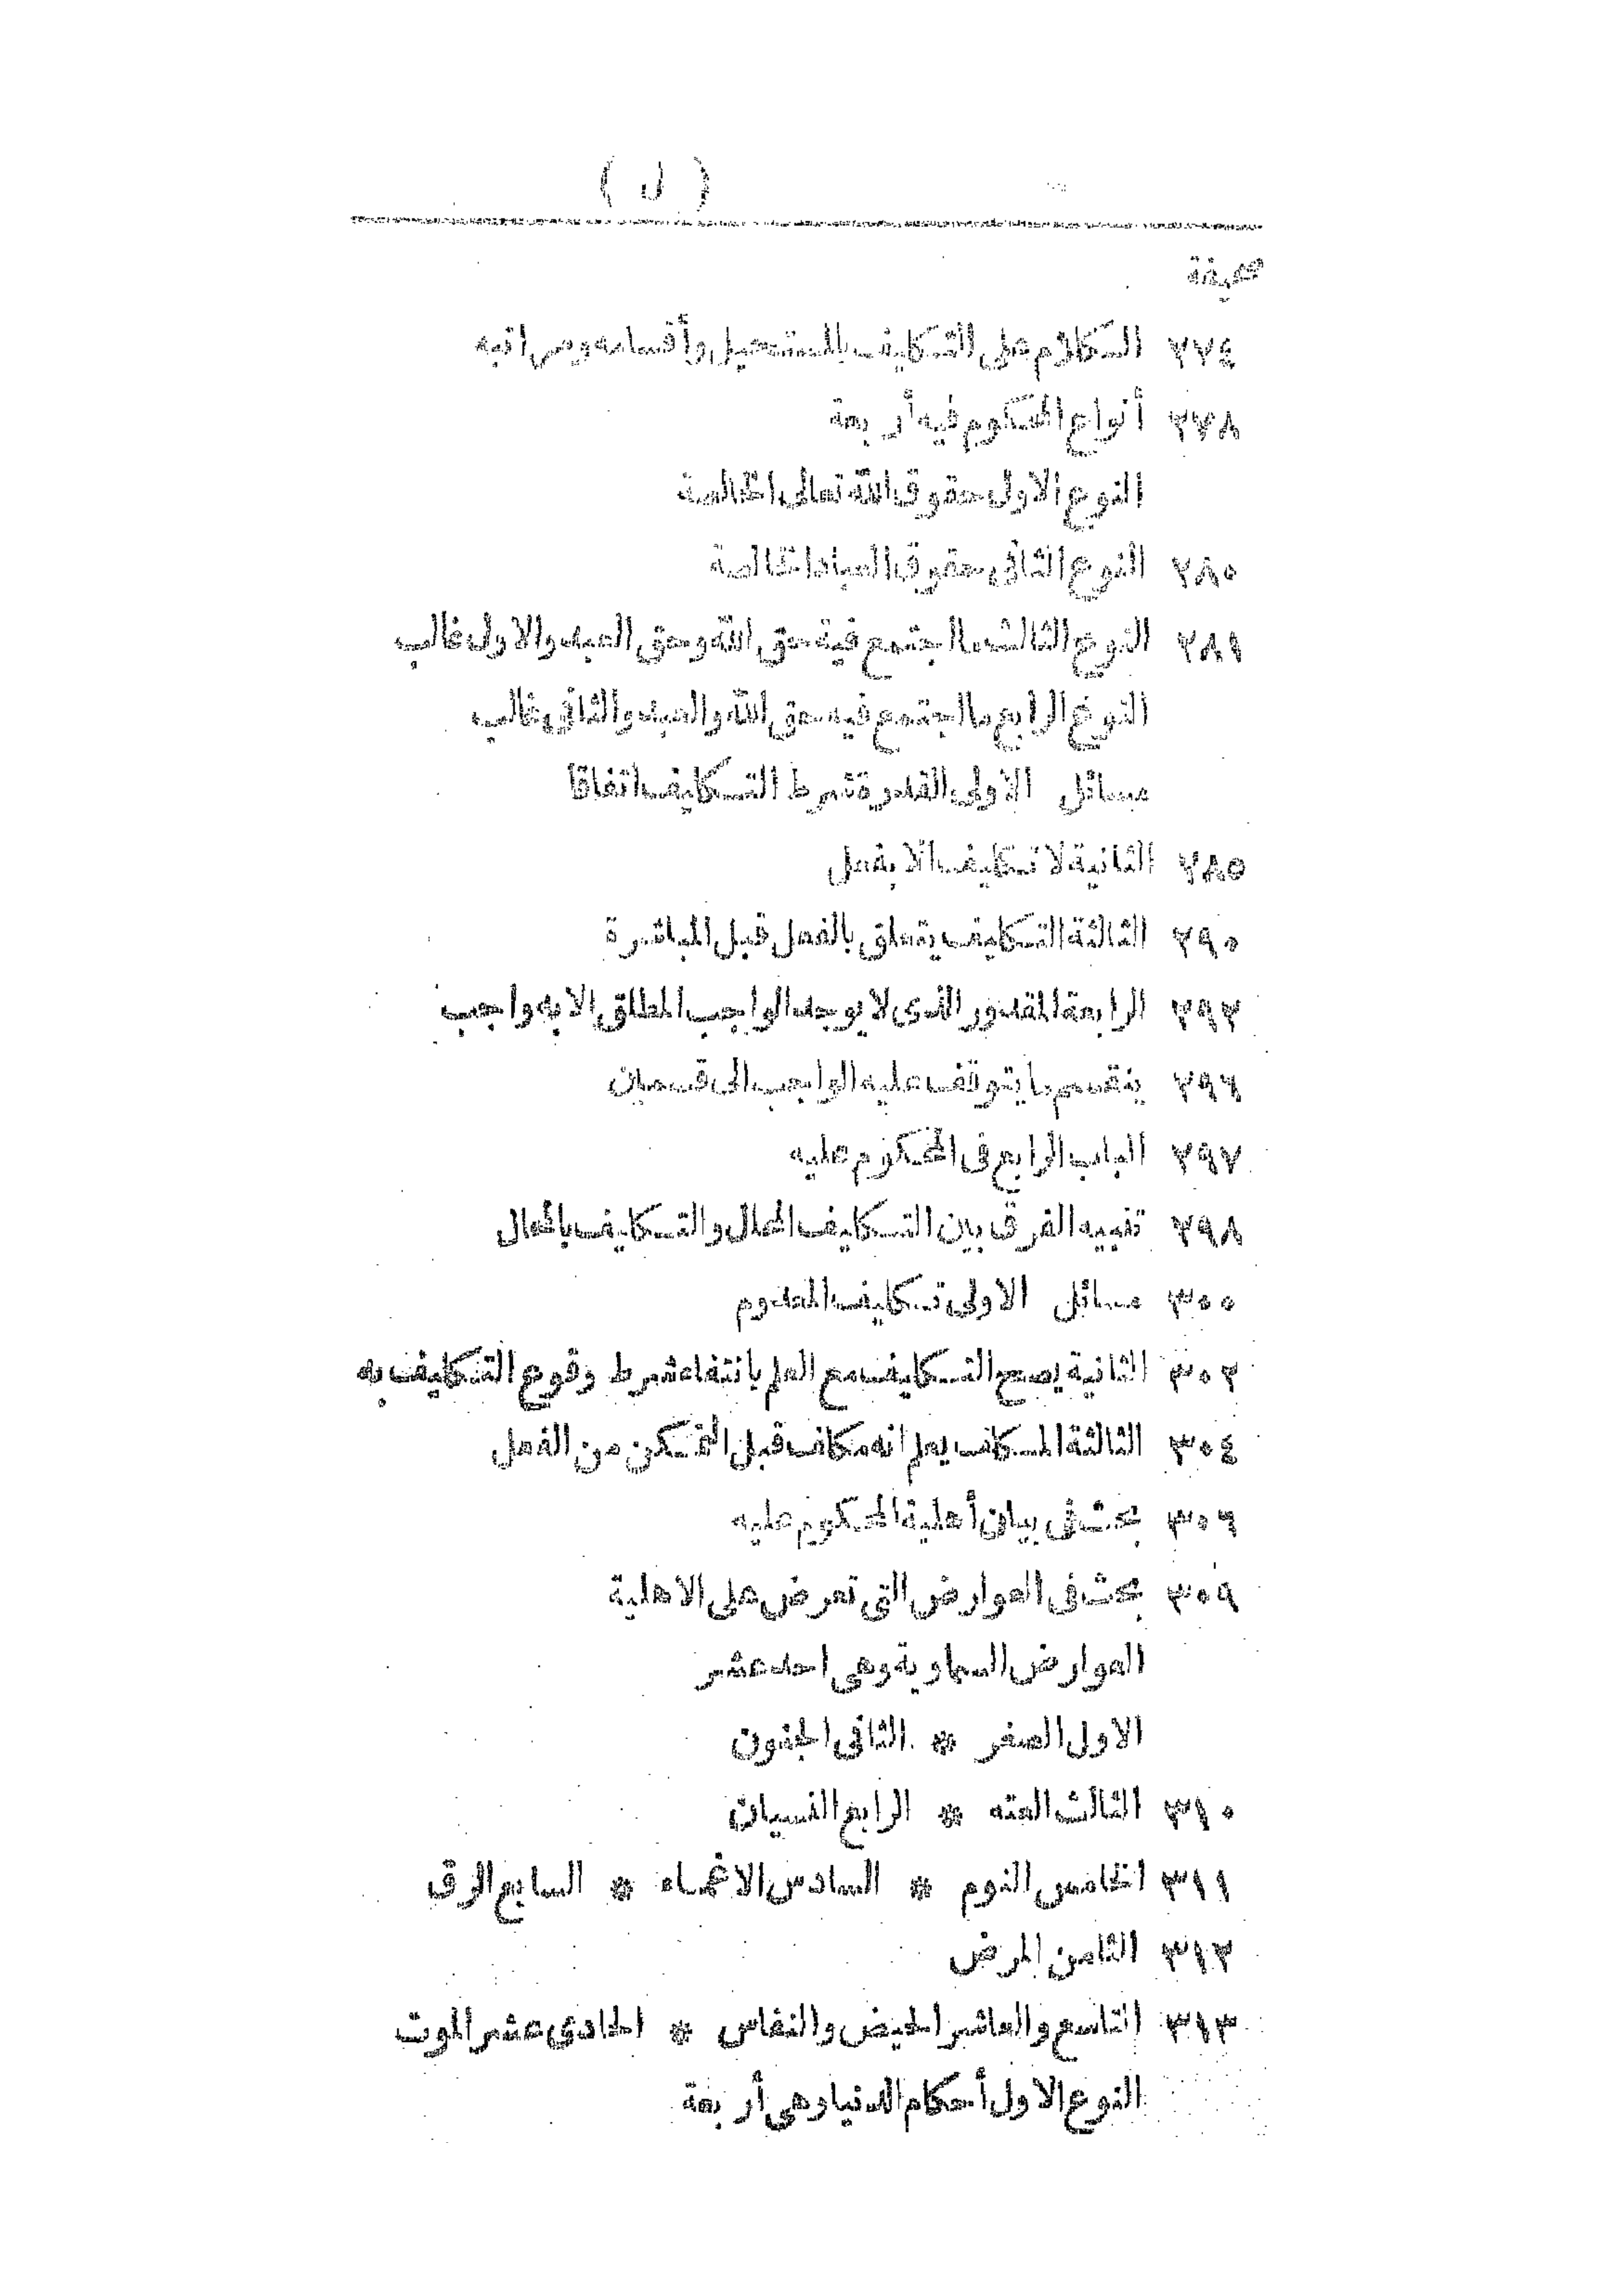 ( ل )
صحيفة
٢٧٤ الكلام على التكليف بالمستحيل وأقسامه ومراتبه
٢٧٨ أنواع المحكوم فيه أربعة
النوع الاول حقوق الله تعالى الخالصة
٢٨٠ النوع الثانى حقوق العباد الخالصة
٢٨١ النوع الثالث ما اجتمع فية حق الله وحق العبد والاول غالب
النوع الرابع ما اجتمع فيه حق الله والعبد والثانى غالب
مسائل الاولى القدرة شرط التكليف اتفاقا
٢٨٥ الثانية لا تكليف الا بفعل
٢٩٠ الثالثة التكليف يتعلق بالفعل قبل المباشرة
٢٩٢ الرابعة المقدور الذى لا يوجد الواجب المطلق الا به واجب
٢٩٦ ينقسم ما يتوقف عليه الواجب الى قسمين
٢٩٧ الباب الرابع فى المحكوم عليه
٢٩٨ تنبيه الفرق بين التكليف المحال والتكليف بالمحال
٣٠٠ مسائل الاولى تكليف المعدوم
٣٠٢ الثانية يصح التكليف مع العلم بانتفاء شرط وقوع التكليف به
٣٠٤ الثالثة المكلف يعلم انه مكلف قبل التمكن من الفعل
٣٠٦ بحث فى بيان أهلية المحكوم عليه
٣٠٩ بحث فى العوارض التى تعرض على الاهلية
العوارض السماوية وهى احد عشر
الاول الصغر * الثانى الجنون
٣١٠ الثالث العته * الرابع النسيان
٣١١ الخامس النوم * السادس الاغماء * السابع الرق
٣١٢ الثامن المرض
٣١٣ التاسع والعاشر الحيض والنفاس * الحادى عشر الموت
النوع الاول أحكام الدنيا وهى أربعة